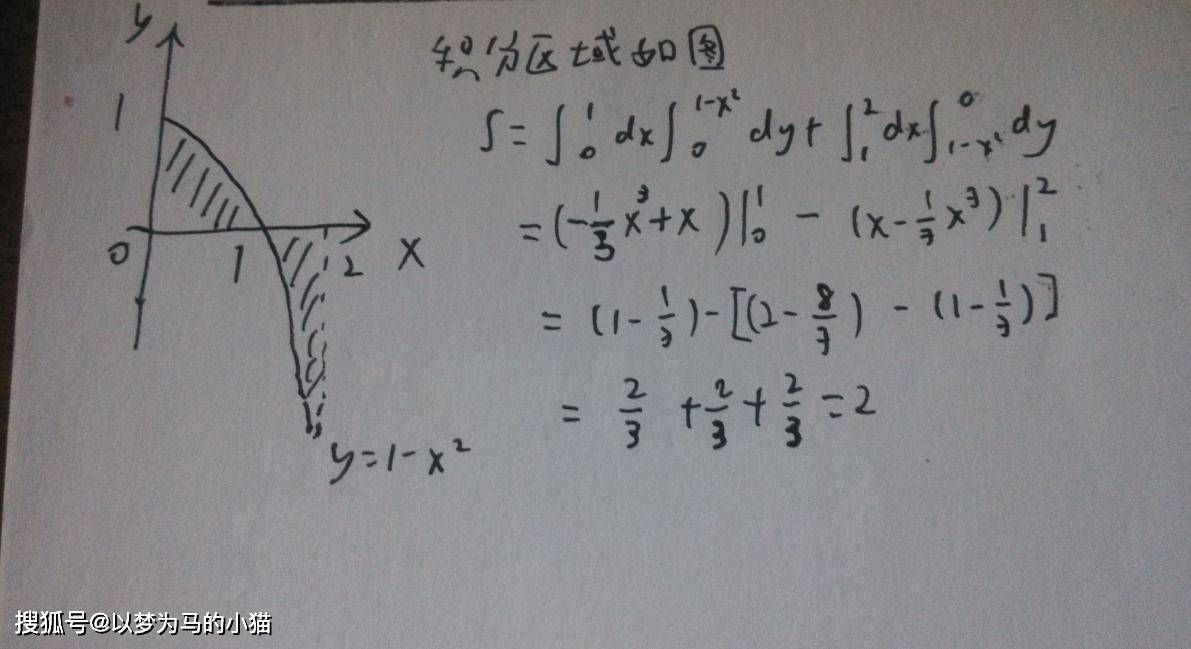 y
1
0
1
2
x
y=1-x²
积分区域如图
S=∫₀¹dx∫₀^(1-x²)dy+∫₁²dx∫_(1-x²)^0 dy
=(-1/3x³+x)|₀¹-(x-1/3x³)|₁²
=(1-1/3)-[(2-8/3)-(1-1/3)]
=2/3+2/3+2/3=2
搜狐号@以梦为马的小猫